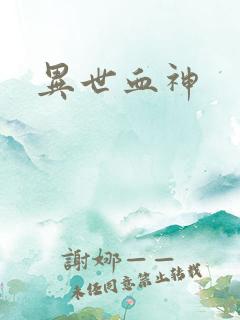 異世血神
謝娜——
未经同意禁止转载